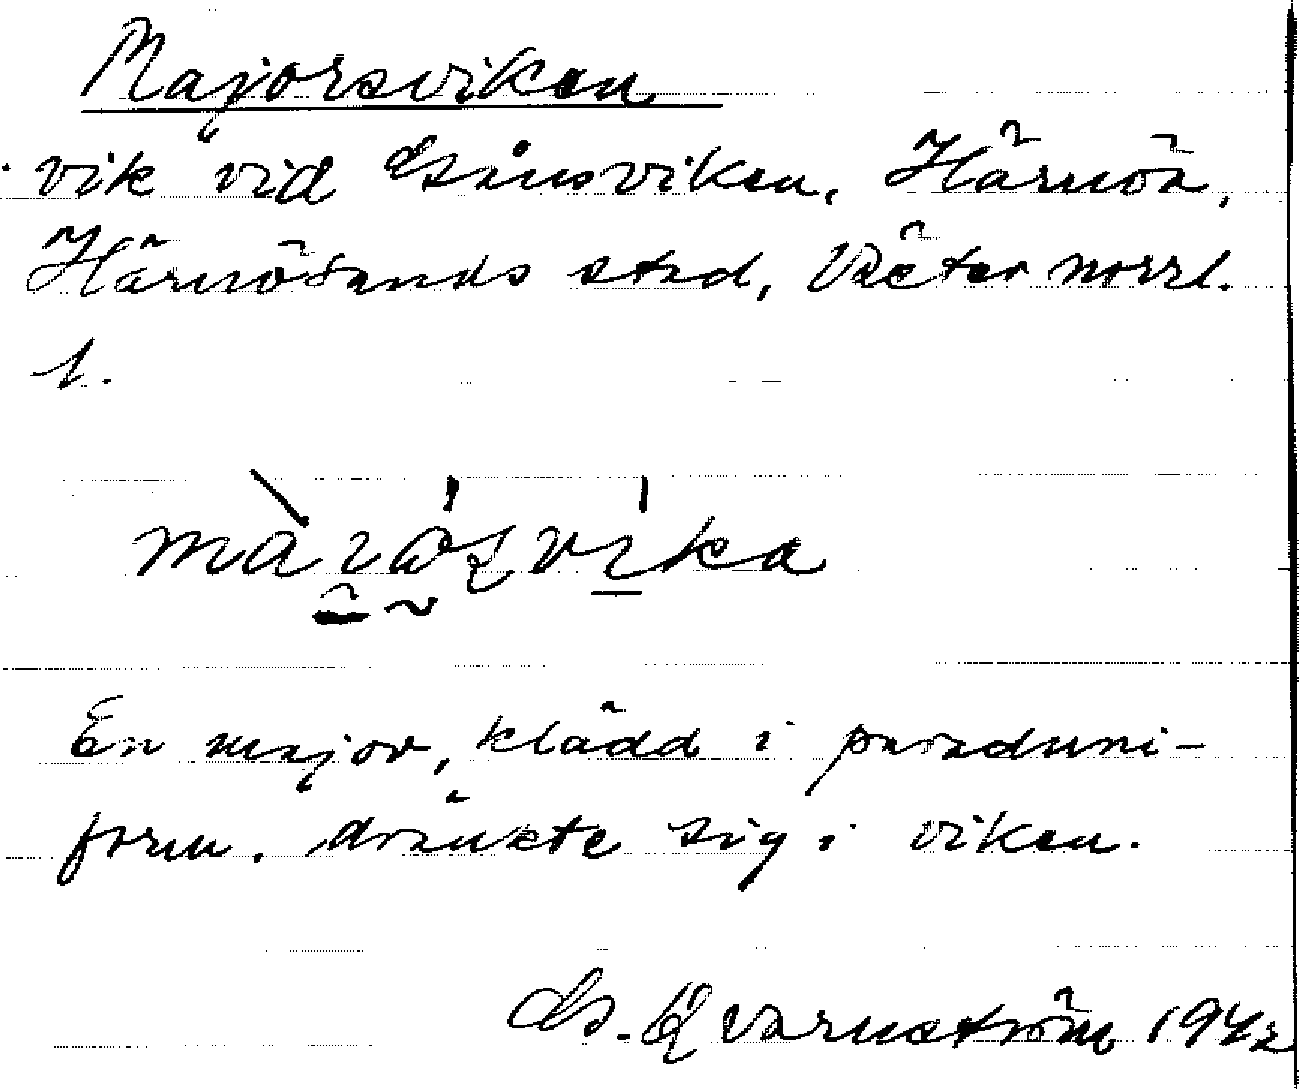 Majorsviken
vik vid Gånsviken, Härnön,
Härnösands stad, Västernorrl.
l.
En major, klädd i paraduni-
form, dränkte sig i viken.
G. Qvarnström 1942